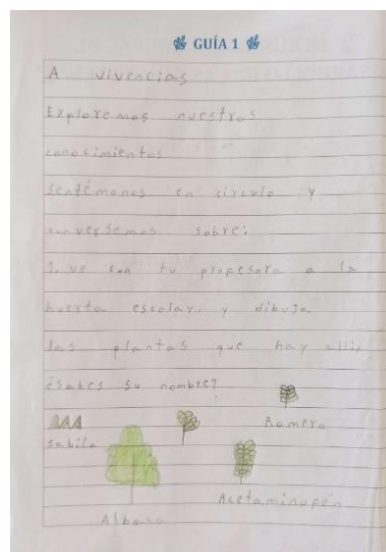 GUÍA 1
A vivencias
Exploremos nuestros
conocimientos
sentémonos en circulo y
conversemos sobre:
1. ve con tu profesora a la
huerta escolar, y dibuja
las plantas que hay alli,
¿sabes su nombre?
Romero
sabila
Acetaminofén
Albaca